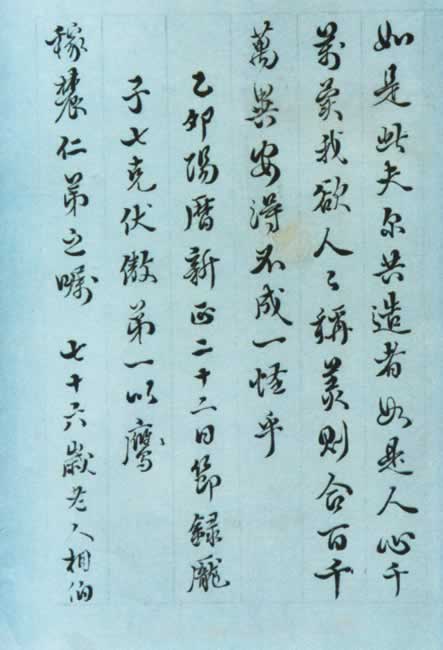 如是此夫尔共造者如是人心千
萬異我欲人々稱美則合百千
萬異安得不成一怪乎
乙卯陽曆新正二十二日節録龐
子七克伏傲第一以應
稼農仁弟之囑 七十六歲老人相伯